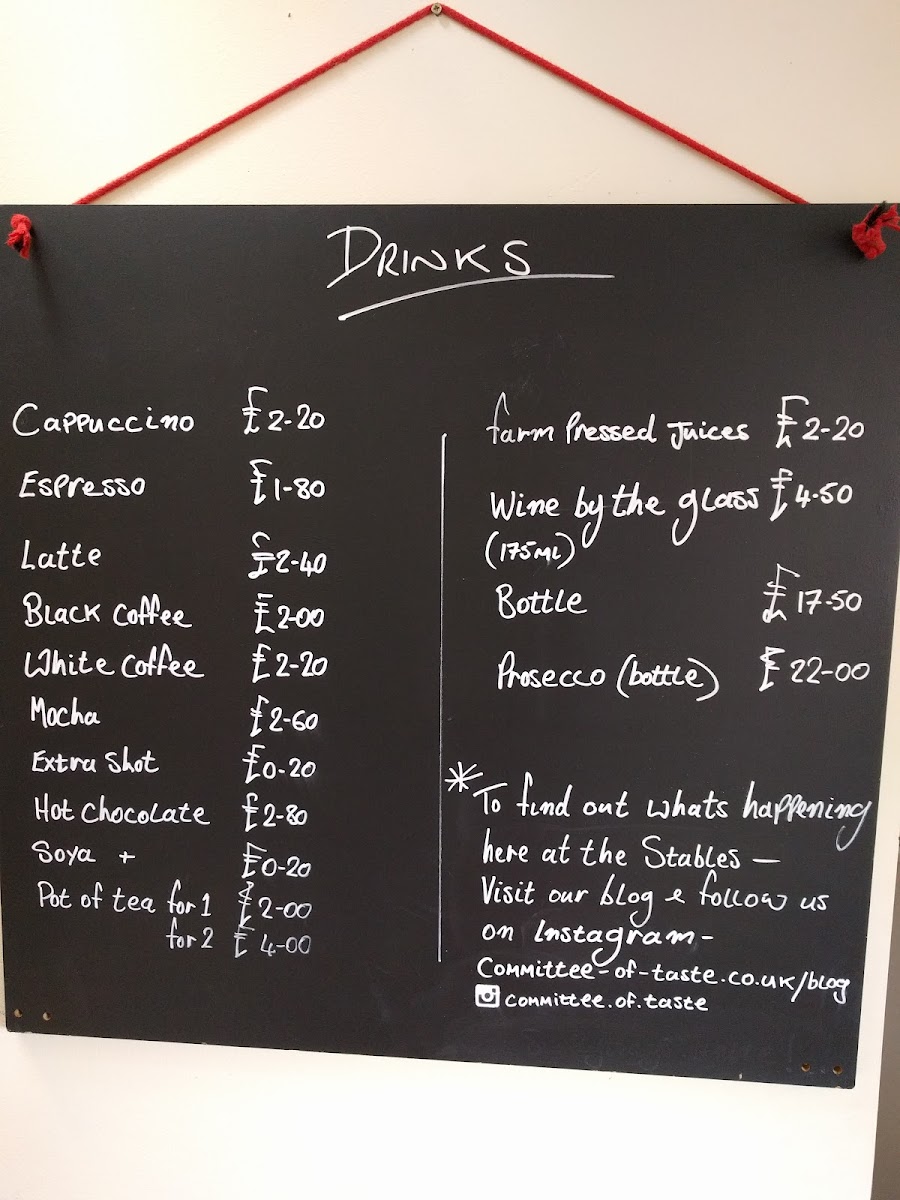 DRINKS
Cappuccino £2-20
Espresso £1-80
Latte £2-40
Black Coffee £2-00
White Coffee £2-20
Mocha £2-60
Extra Shot £0-20
Hot Chocolate £2-80
Soya + £0-20
Pot of tea for 1 £2-00
for 2 £4-00
farm Pressed Juices £2-20
Wine by the glass £4-50
(175ml)
Bottle £17-50
Prosecco (bottle) £22-00
* To find out whats happening
here at the Stables —
Visit our blog & follow us
on Instagram-
Committee-of-taste.co.uk/blog
committee.of.taste